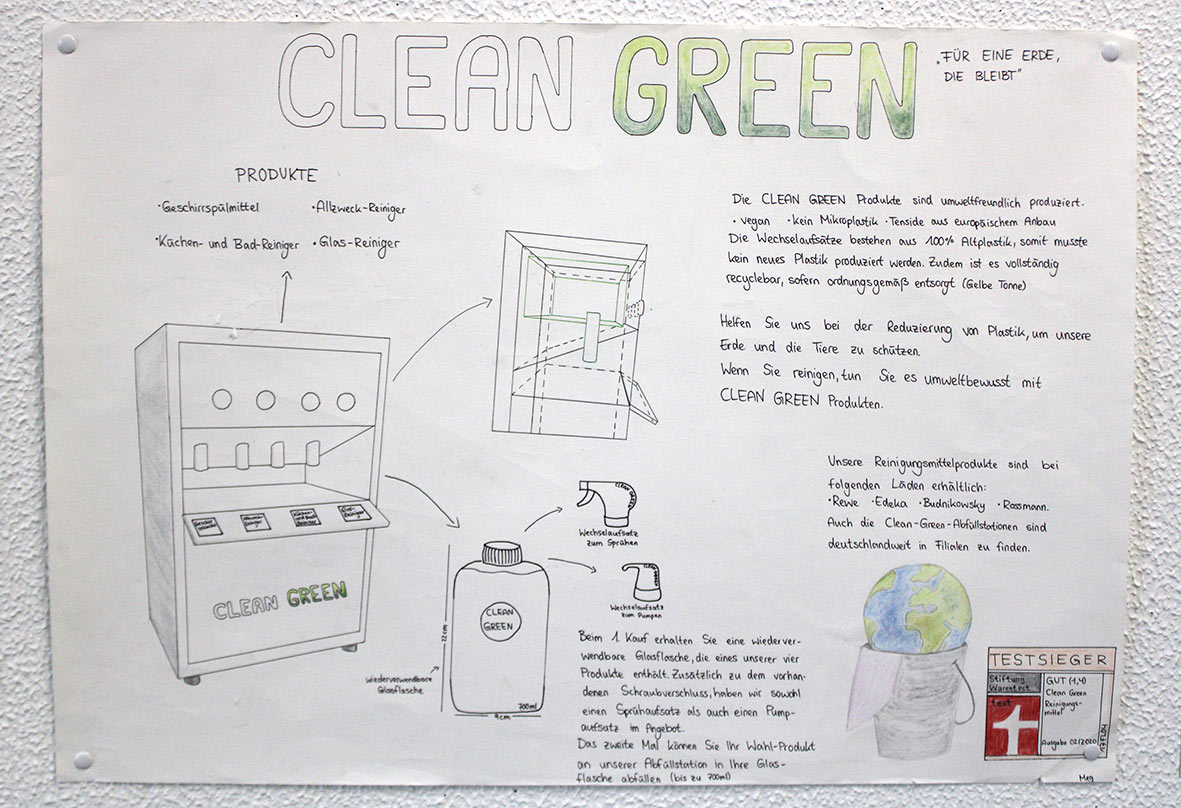 CLEAN GREEN
„FÜR EINE ERDE,
DIE BLEIBT"
PRODUKTE
·Geschirrspülmittel ·Allzweck-Reiniger
·Küchen- und Bad-Reiniger ·Glas-Reiniger
Die CLEAN GREEN Produkte sind umweltfreundlich produziert.
·vegan ·kein Mikroplastik ·Tenside aus europäischem Anbau
Die Wechselaufsätze bestehen aus 100% Altplastik, somit musste
kein neues Plastik produziert werden. Zudem ist es vollständig
recyclebar, sofern ordnungsgemäß entsorgt (Gelbe Tonne)
Helfen Sie uns bei der Reduzierung von Plastik, um unsere
Erde und die Tiere zu schützen.
Wenn Sie reinigen, tun Sie es umweltbewusst mit
CLEAN GREEN Produkten.
Unsere Reinigungsmittelprodukte sind bei
folgenden Läden erhältlich:
·Rewe ·Edeka ·Budnikowsky ·Rossmann.
Auch die Clean-Green-Abfüllstationen sind
deutschlandweit in Filialen zu finden.
CLEAN GREEN
CLEAN GREEN
Wechselaufsatz
zum Sprühen
Wechselaufsatz
zum Pumpen
CLEAN
GREEN
22cm
9cm
700ml
Wiederverwendbare
Glasflasche
Beim 1. Kauf erhalten Sie eine wiederver-
wendbare Glasflasche, die eines unserer vier
Produkte enthält. Zusätzlich zu dem vorhan-
denen Schraubverschluss, haben wir sowohl
einen Sprühaufsatz als auch einen Pump-
aufsatz im Angebot.
Das zweite Mal können Sie Ihr Wahl-Produkt
an unserer Abfüllstation in Ihre Glas-
flasche abfüllen (bis zu 700ml)
TESTSIEGER
Stiftung
Warentest
test
GUT (1,4)
Clean Green
Reinigungs-
mittel
Ausgabe 02/2020
Meg